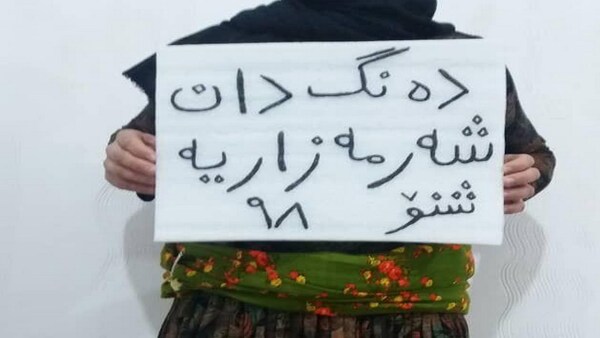 ده نگ دان
شه رمه زاریه
شنۆ ٩٨